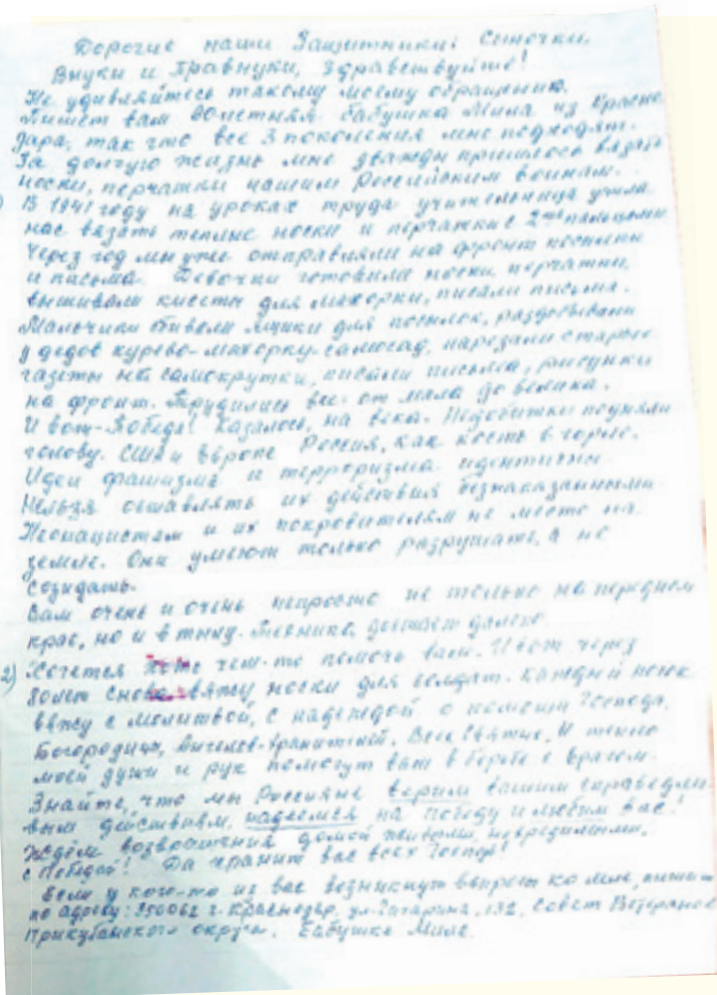 Дорогие наши Защитники! Сыночки,
Внуки и Правнуки, Здравствуйте!
Не удивляйтесь такому моему обращению.
Пишет вам 90летняя бабушка Мила из Красно
дара, так что все 3 поколения мне подходят.
За долгую жизнь мне дважды пришлось вязать
носки, перчатки нашим Российским воинам.
В 1941 году на уроках труда учительница учила
нас вязать теплые носки и перчатки с 2мя пальцами
Через год мы уже отправляли на фронт посылки
и письма. Девочки готовили носки, перчатки,
вышивали кисеты для махорки, писали письма.
Мальчики сбивали ящики для посылок, раздобывали
у дедов курево-махорку-самосад, нарезали старые
газеты на самокрутки, писали письма, рисунки
на фронт. Трудились все от мала до велика.
И вот-Победа! Казалось, на века. Недобитки подняли
голову. США и Европе Россия, как кость в горле.
Идеи фашизма и терроризма идентичны
Нельзя оставлять их действия безнаказанными
Неонацистам и их покровителям не место на
земле. Они умеют только разрушать, а не
созидать.
Вам очень и очень непросто не только на переднем
крае, но и в тылу. Техника достает далеко
2) Хочется хоть чем-то помочь вам. И вот через
80лет снова вяжу носки для солдат. Каждый носок
вяжу с молитвой, с надеждой о помощи Господа,
Богородицы, Ангелов-Хранителей, Всех Святых. И тепло
моей души и рук помогут вам в борьбе с врагом.
Знайте, что мы Россияне верим вашим справедли
вым действиям, надеемся на победу и любим вас!
Ждём возвращения домой живыми, невредимыми,
с Победой! Да хранит вас всех Господь!
Если у кого-то из вас возникнут вопросы ко мне, пишите
по адресу: 350062 г. Краснодар, ул. Гагарина, 132, Совет Ветеранов
Прикубанского округа. Бабушке Миле.